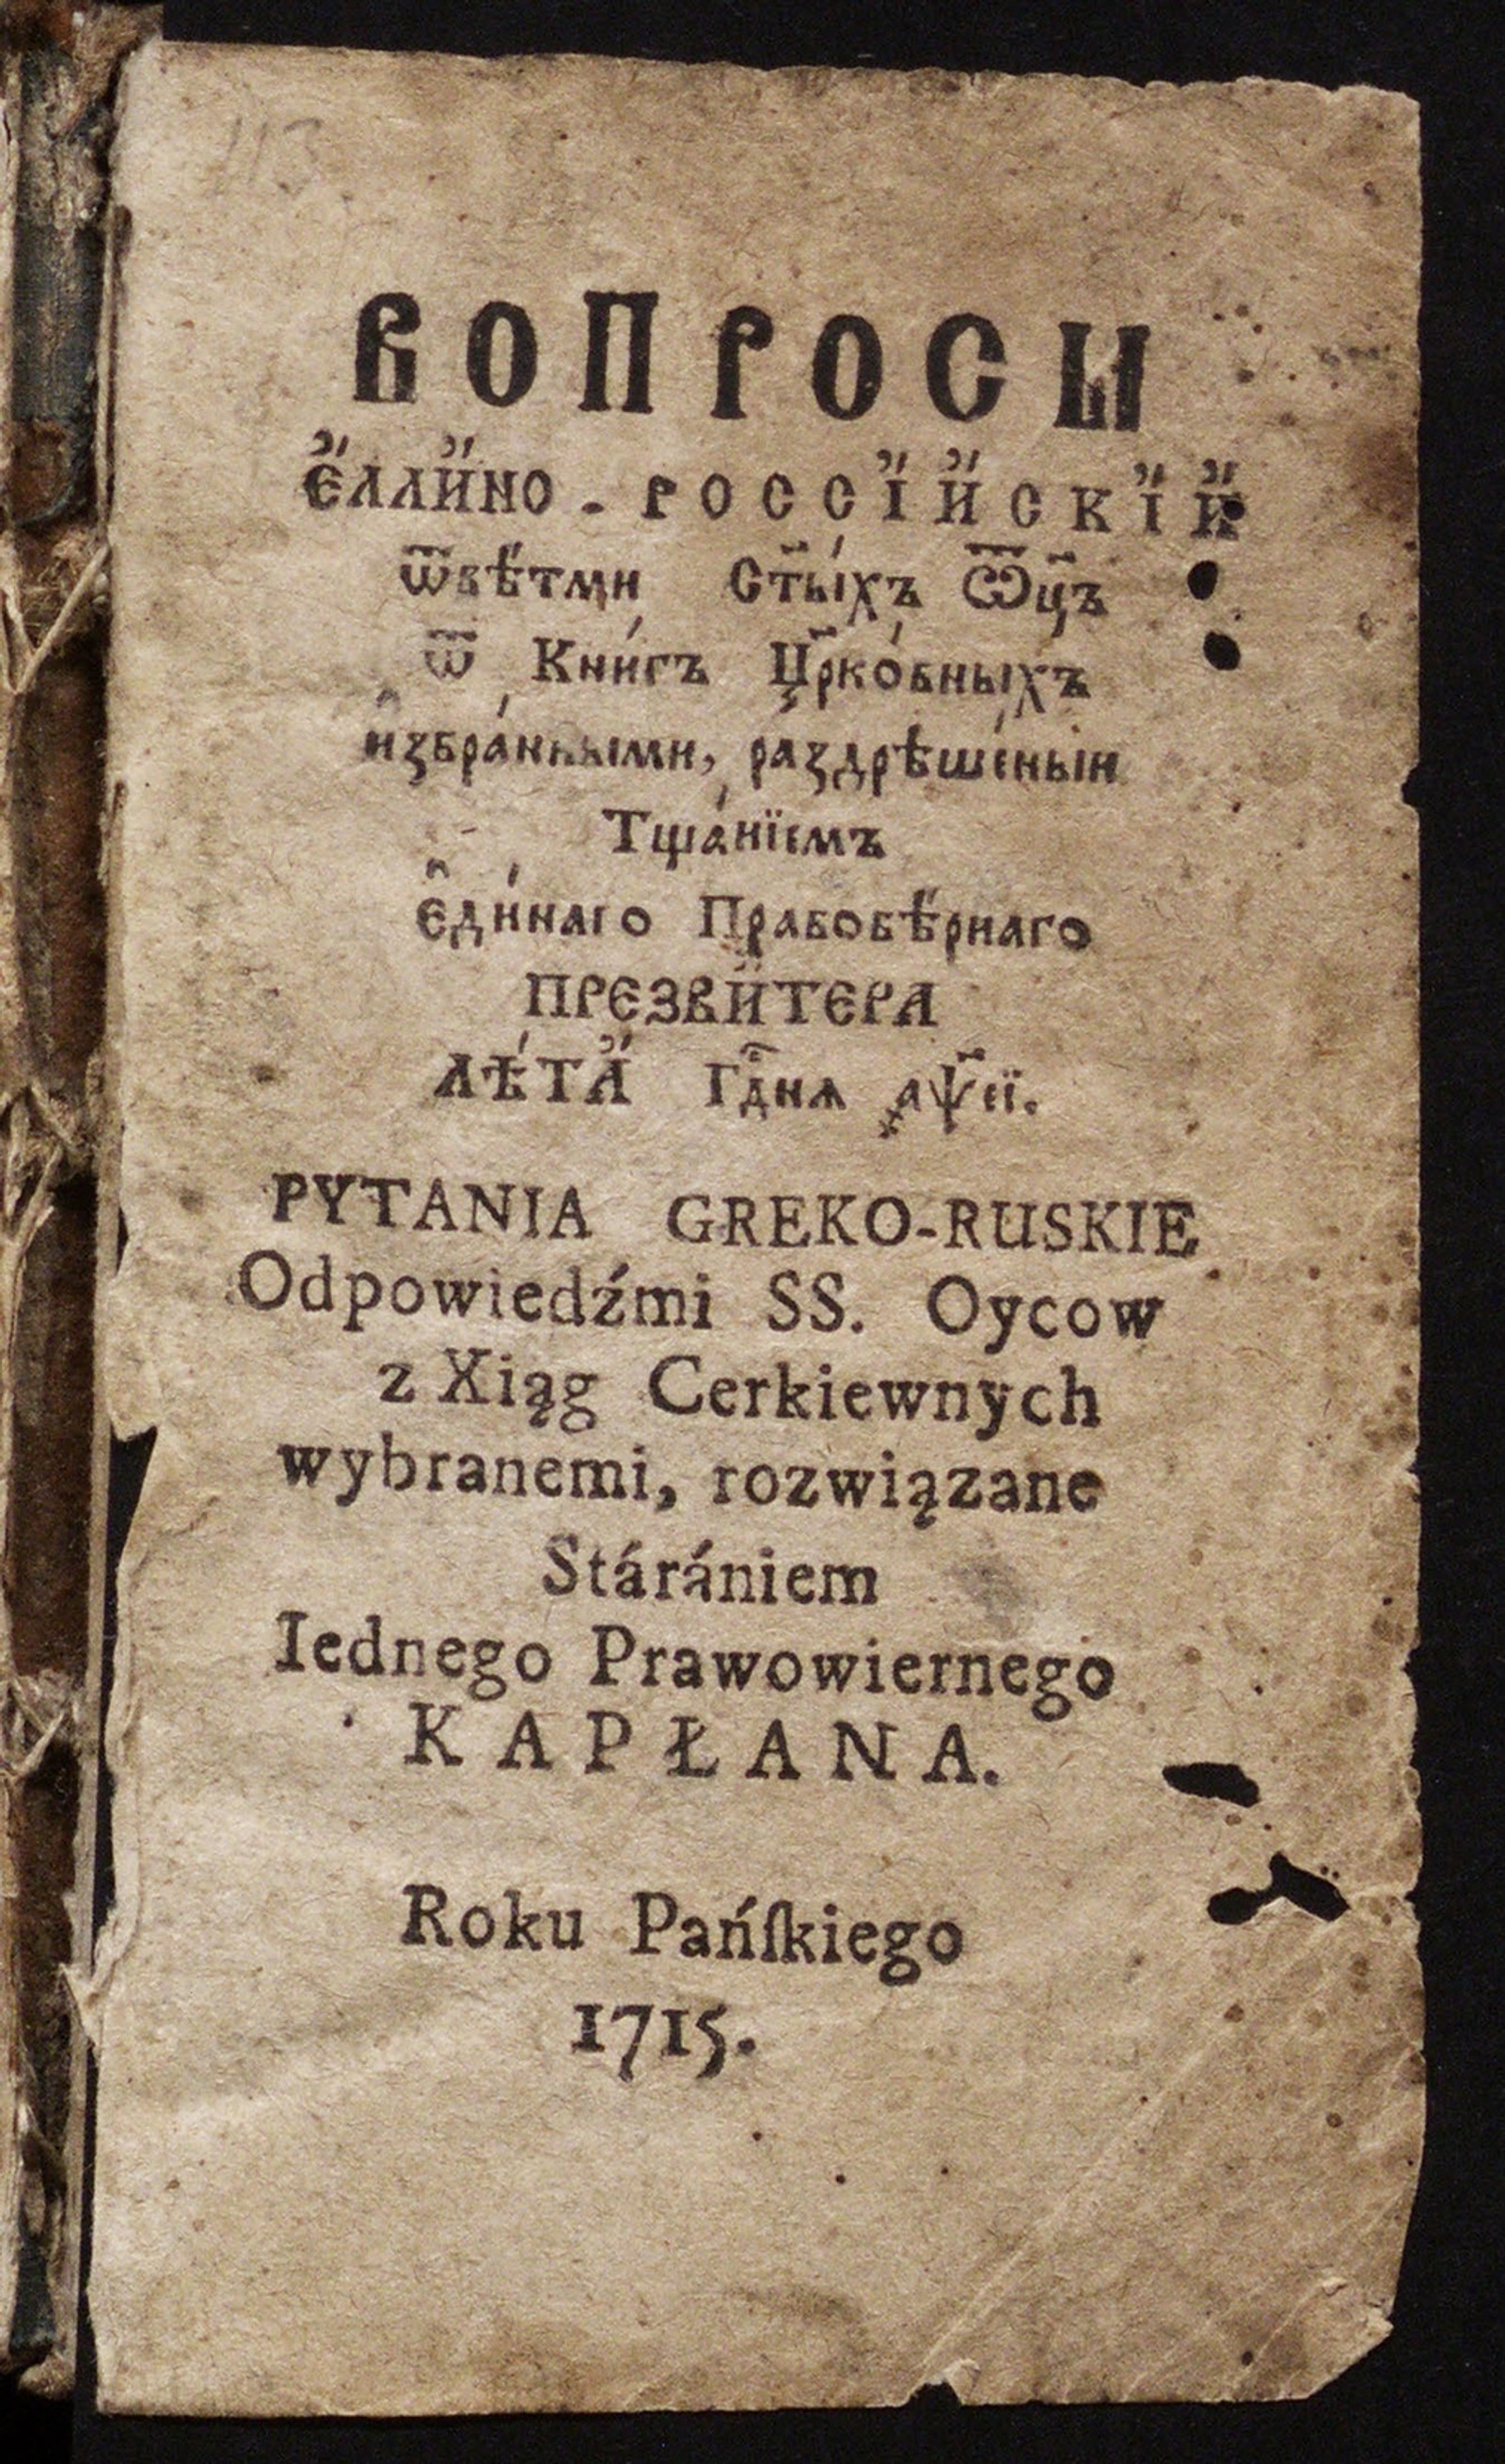 113
ВОПРОСЫ
Є҆ллино-Россїйскїй
ѿвѣ́тми Ст҃ы́хъ Ѿц҃ъ
ѿ Кни́гъ Цр҃ко́вныхъ
и҆збра́нными, раздрѣше́ныи
Тща́нїемъ
є҆ди́наго Правовѣ́рнаго
ПРЕЗВИ́ТЕРА
ЛѢ́ТА Гд҃нѧ ҂аѱ҃еї.
PYTANIA GREKO-RUSKIE
Odpowiedźmi SS. Oycow
z Xiąg Cerkiewnych
wybranemi, rozwiązane
Stárániem
Iednego Prawowiernego
KAPŁANA.
Roku Pańſkiego
1715.